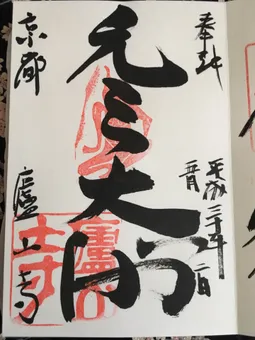 奉拝
平成三十年
二日
元三大師
京都
廬山寺
廬山
寺